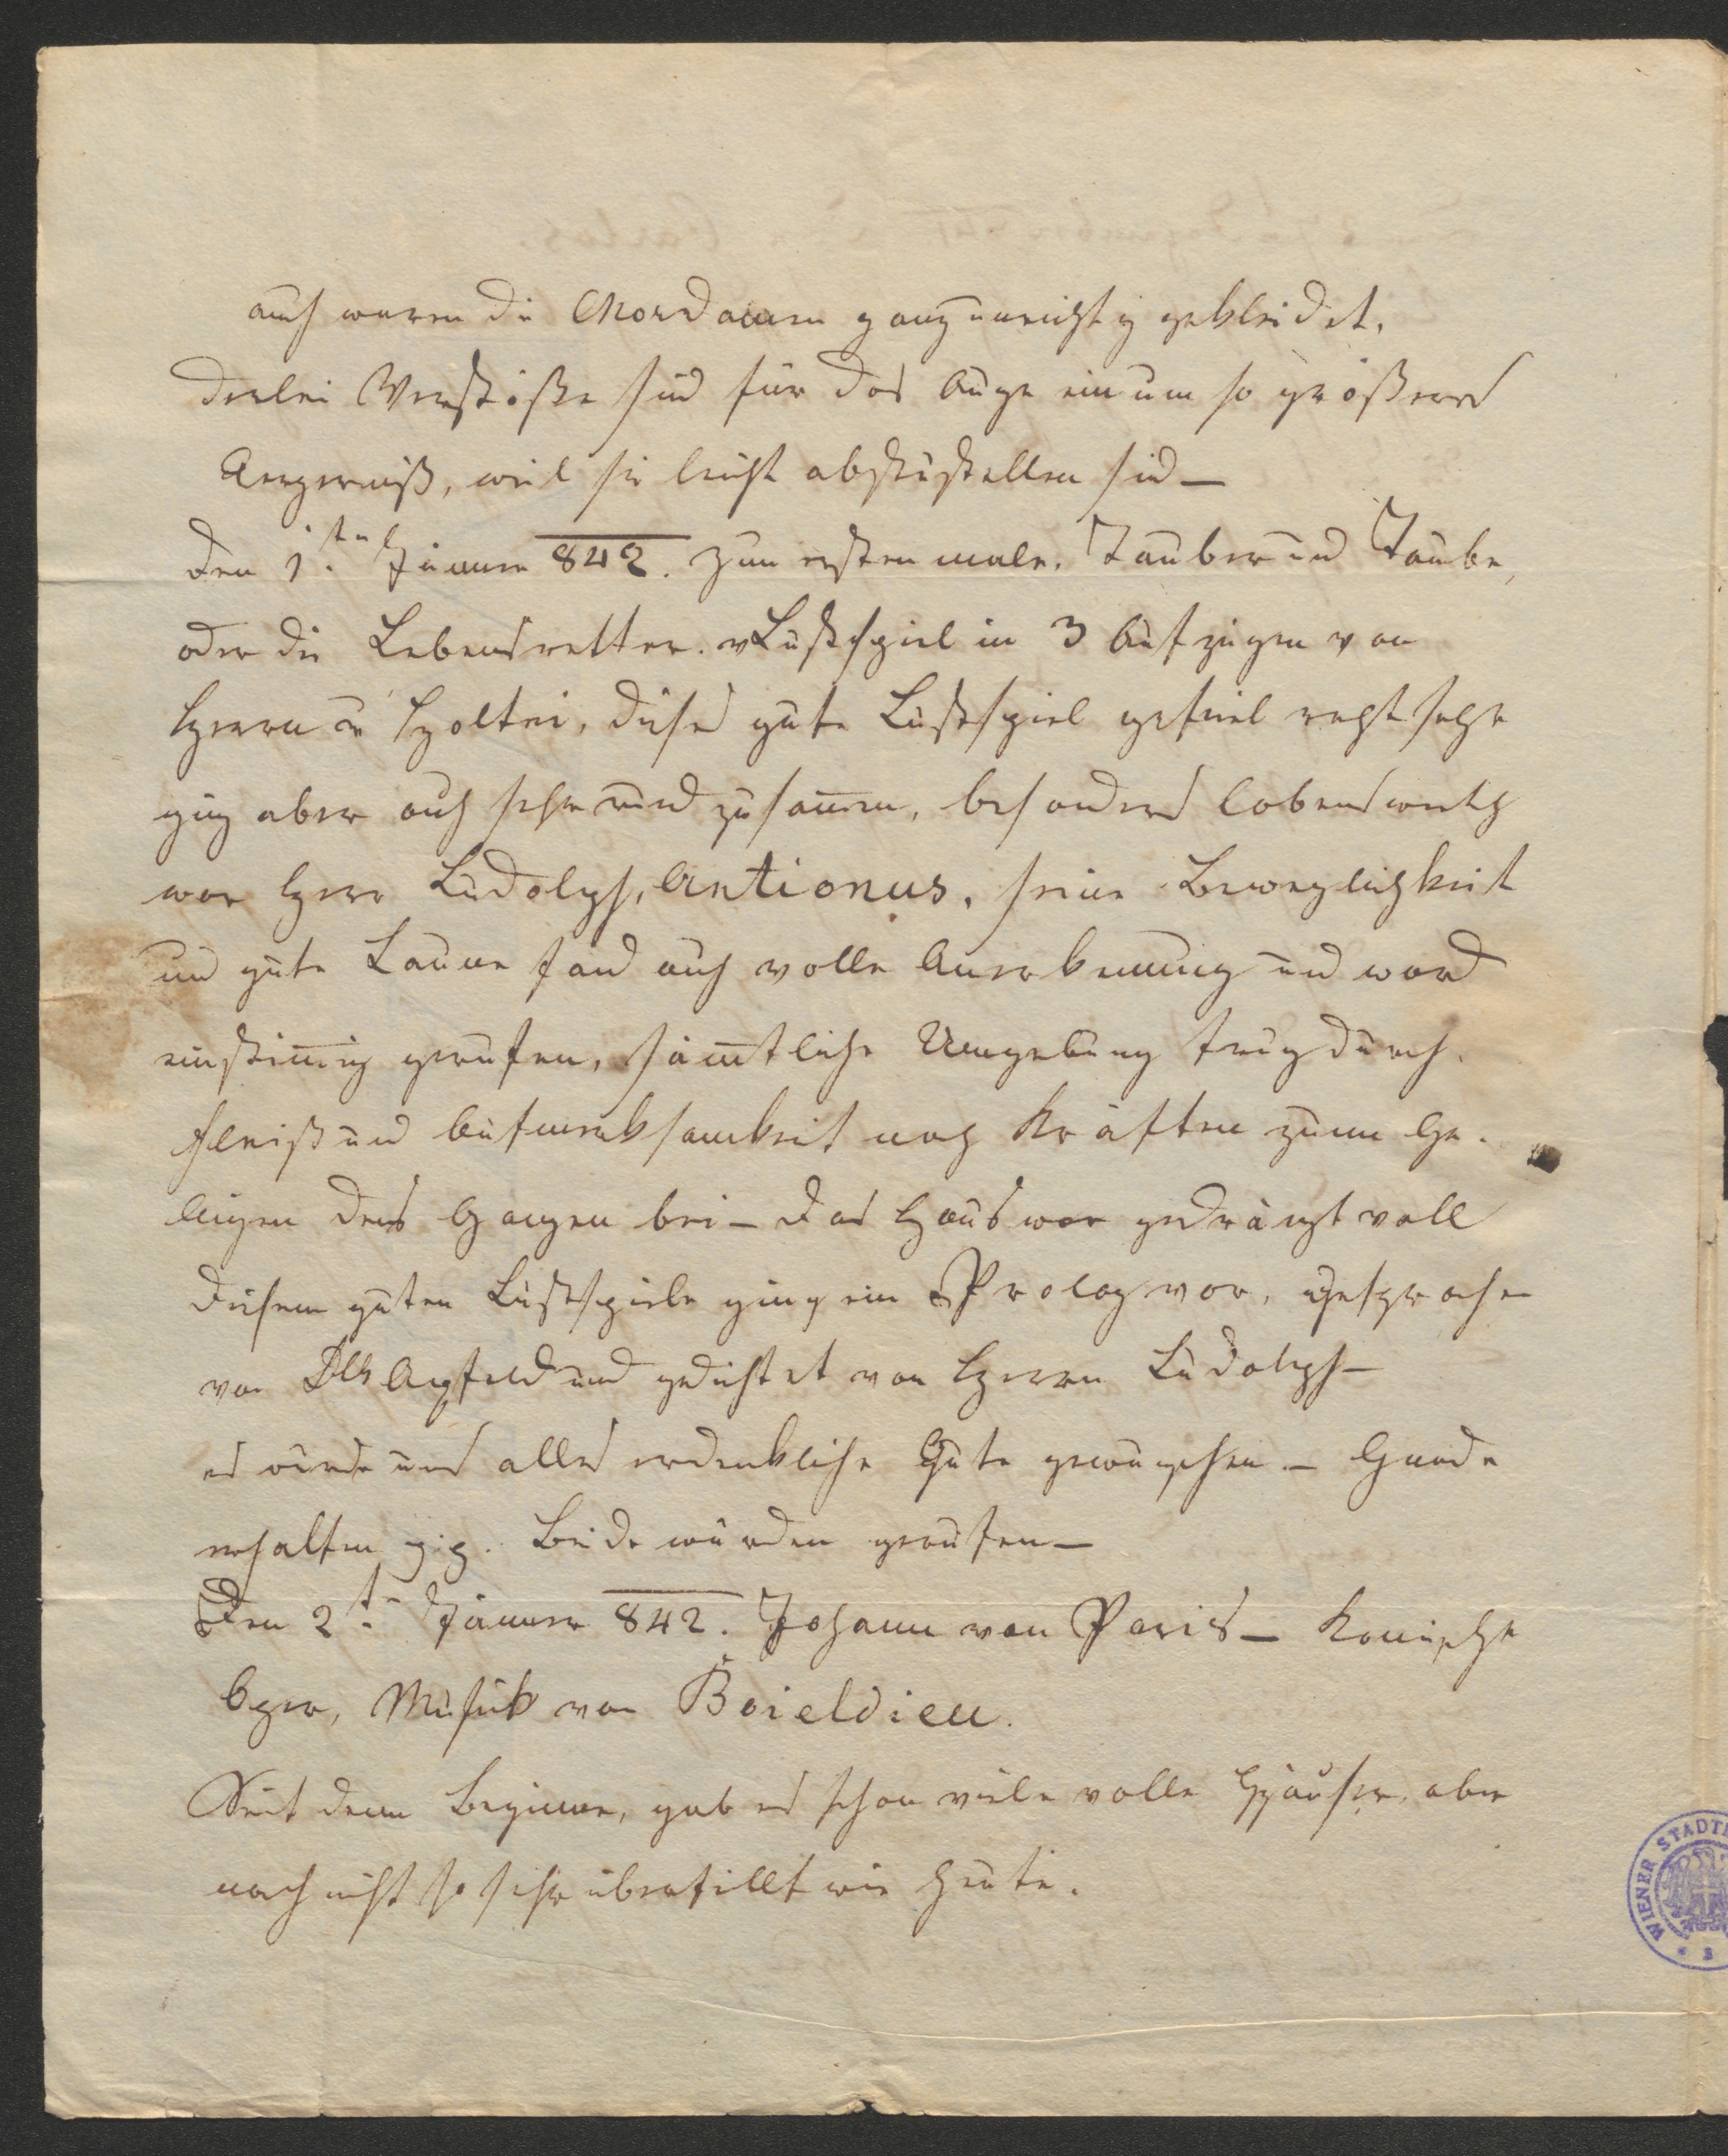 auch waren die Chordamen ganz unrichtig gekleidet.
derlei Verstöße sind für das Auge ein um so größeres
Aergerniß, weil sie leicht abzustellen sind —
den 1ten Jänner 842. zum ersten male. Tauber und Taube,
oder die Lebensretter. Lustspiel in 3 Aufzügen von
Herrn v Holtei, dieses gute Lustspiel gefiel recht sehr
ging aber auch sehr rund zusamen, besonders lobenswerth
war Herr Ludolph, Antionus. seine Beweglichkeit
und gute Laune fand auch volle Anerkennung und ward
einstimig gerufen, sämtliche Umgebung trug durch
Fleiß und Aufmerksamkeit nach Kräften zum Ge-
lingen des Ganzen bei — das Haus war gedrängt voll
diesem guten Lustspiele ging ein Prolog vor, gesprochen
von Dlle Apfeld und gedichtet von Herrn Ludolph —
es wurde uns alles erdenkliche Gute gewünschen — Gnade
erhalten Beide wurden gerufen —
Den 2t. Jänner 842. Johann von Paris — Komische
Oper, Musik von Boieldieu.
Seit dem Beginne, gab es schon viele volle Häuser, aber
noch nicht so sehr überfillt wie heute.
WIENER STADT